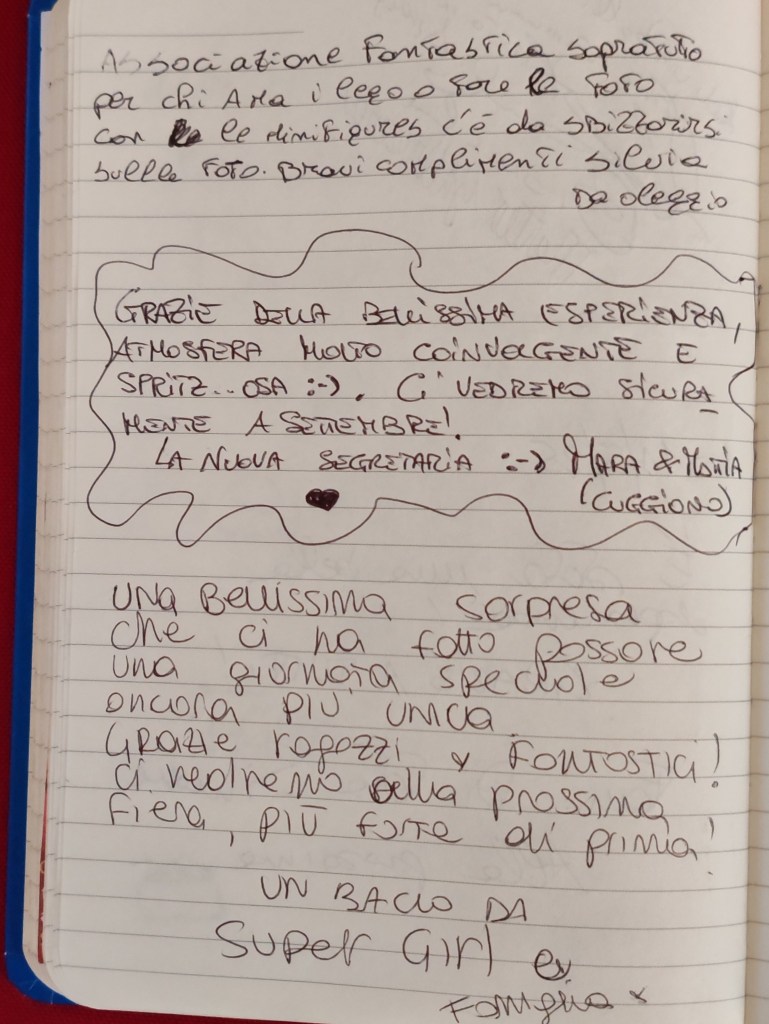 Associazione Fantastica sopratuto
per chi Ama i lego o fare le foto
con le minifigures c'è da sbizzorirsi
sulle foto. Bravi complimenti silvia
Da oleggio
GRAZIE DELLA BELLISSIMA ESPERIENZA,
ATMOSFERA MOLTO COINVOLGENTE E
SPRITZ..OSA :-). CI VEDREMO SICURA
MENTE A SETTEMBRE!
LA NUOVA SEGRETARIA :-) MARA &
(CUGGIONO)
UNA Bellissima sorpresa
che ci ha fatto passare
una giornata speciale
ancora PIÙ unica
Grazie ragazzi FANTASTICI!
Ci vedremo alla prossima
Fiera, PIÙ forte di prima!
UN BACIO DA
Super Girl e
Famiglia